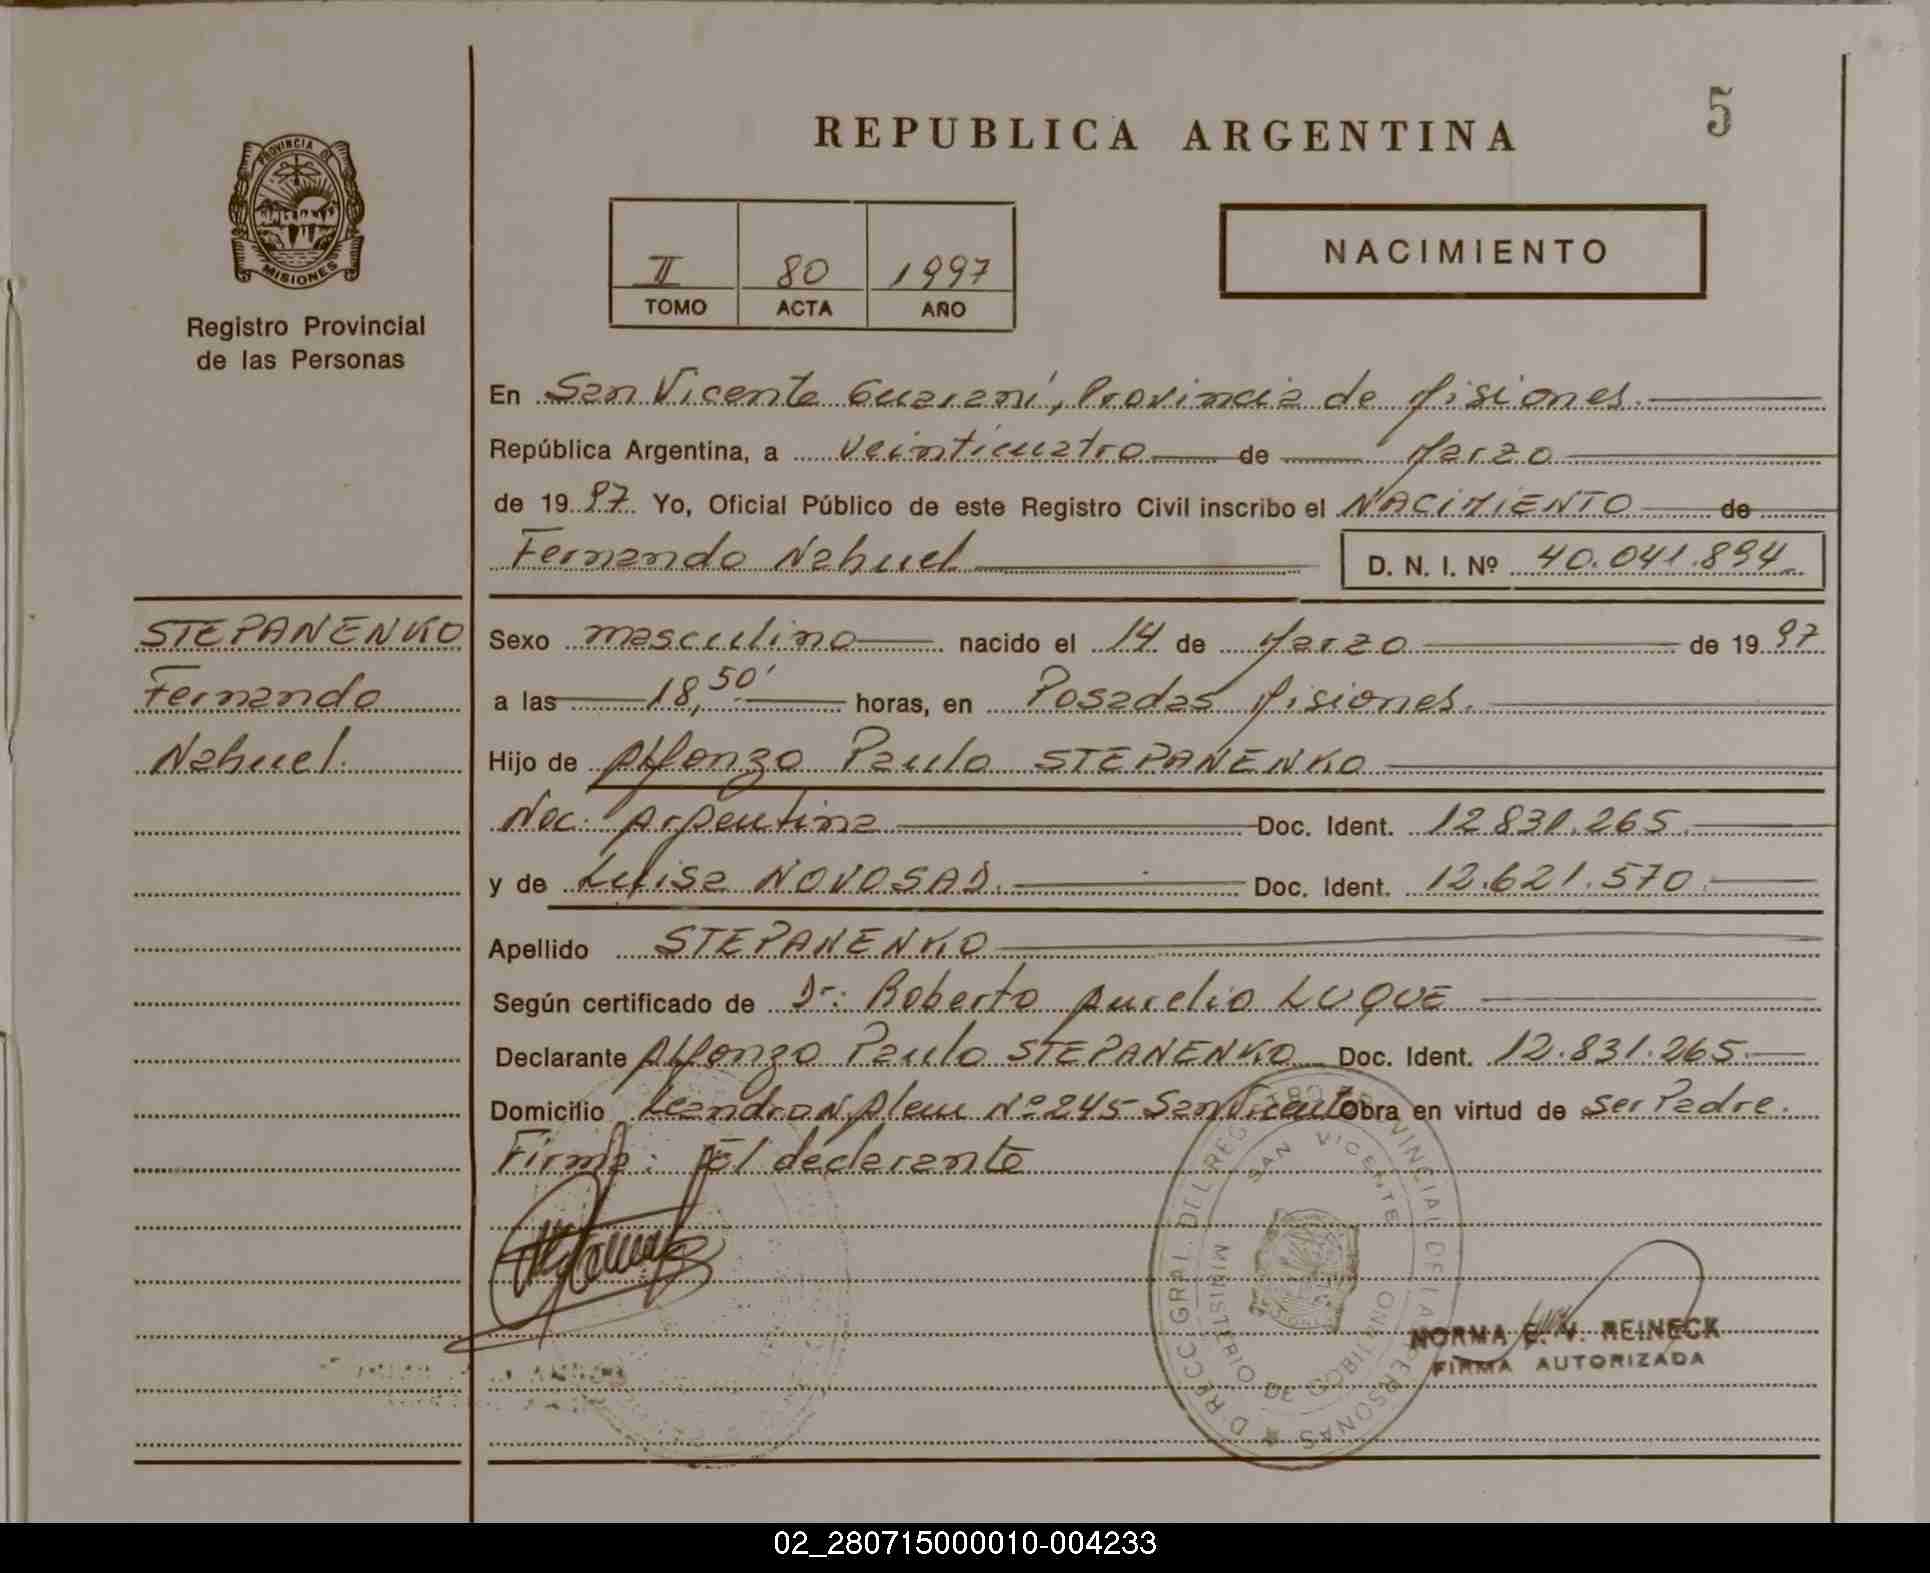 REPUBLICA ARGENTINA
5
PROVINCIA DE
MISIONES
Registro Provincial
de las Personas
II 80 1997
TOMO ACTA AÑO
NACIMIENTO
En San Vicente Guaraní, Provincia de Misiones.
República Argentina, a veinticuatro de Marzo
de 1997 Yo, Oficial Público de este Registro Civil inscribo el NACIMIENTO de
Fernando Nahuel D. N. I. Nº 40.041.894
STEPANENKO
Fernando
Nahuel.
Sexo masculino nacido el 14 de Marzo de 1997
a las 18,50' horas, en Posadas Misiones.
Hijo de Alfonzo Paulo STEPANENKO
Nac. Argentina Doc. Ident. 12.831.265
y de Luisa NOVOSAD. Doc. Ident. 12.621.570
Apellido STEPANENKO
Según certificado de Dr: Roberto Aurelio LUQUE
Declarante Alfonzo Paulo STEPANENKO Doc. Ident. 12.831.265
Domicilio Leandro N. Alem Nº 245 San Vicente Obra en virtud de ser Padre.
Firma: El declarante
DIRECC. GRAL. DEL REGISTRO PROVINCIAL DE LAS PERSONAS
SAN VICENTE
MINISTERIO DE GOBIERNO
NORMA E. V. REINECK
FIRMA AUTORIZADA
02_280715000010-004233